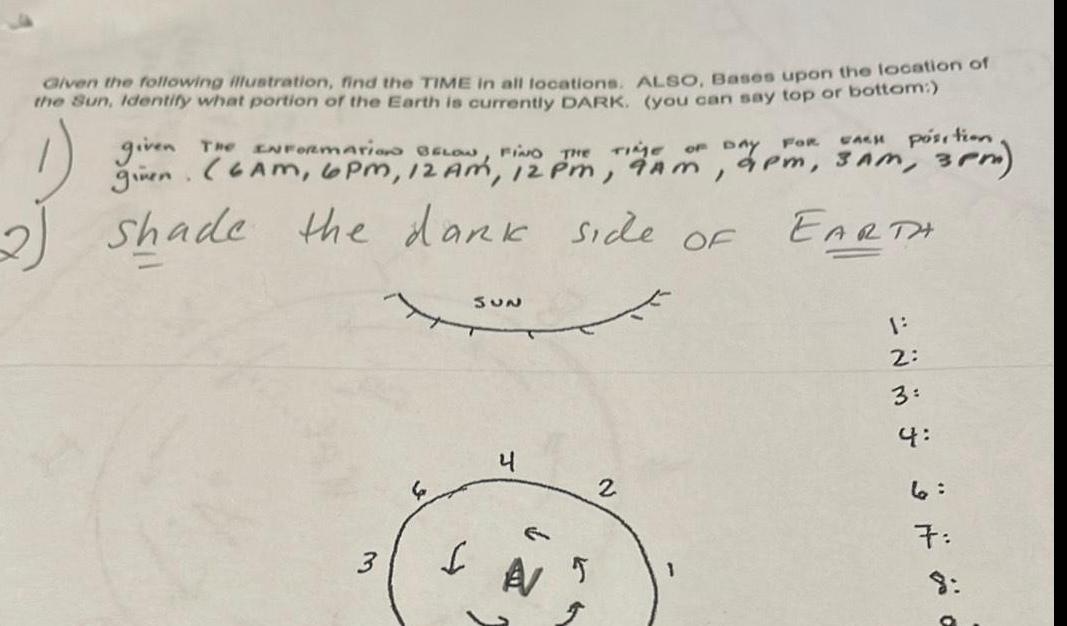 Given the following illustration, find the TIME in all locations. ALSO, Bases upon the location of
the Sun, Identify what portion of the Earth is currently DARK. (you can say top or bottom:)
1) given THE INFORMATION BELOW, FIND THE TIME OF DAY FOR EACH position
given. (6AM, 6PM, 12AM, 12PM, 9AM, 9PM, 3AM, 3PM)
2) shade the dark side OF EARTH
SUN
1:
2:
3:
4:
6:
7:
8:
4
6
2
3
N
1